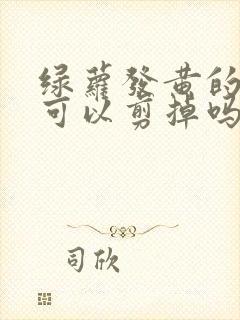 绿蘿發黄的
可以剪掉吗
司欣